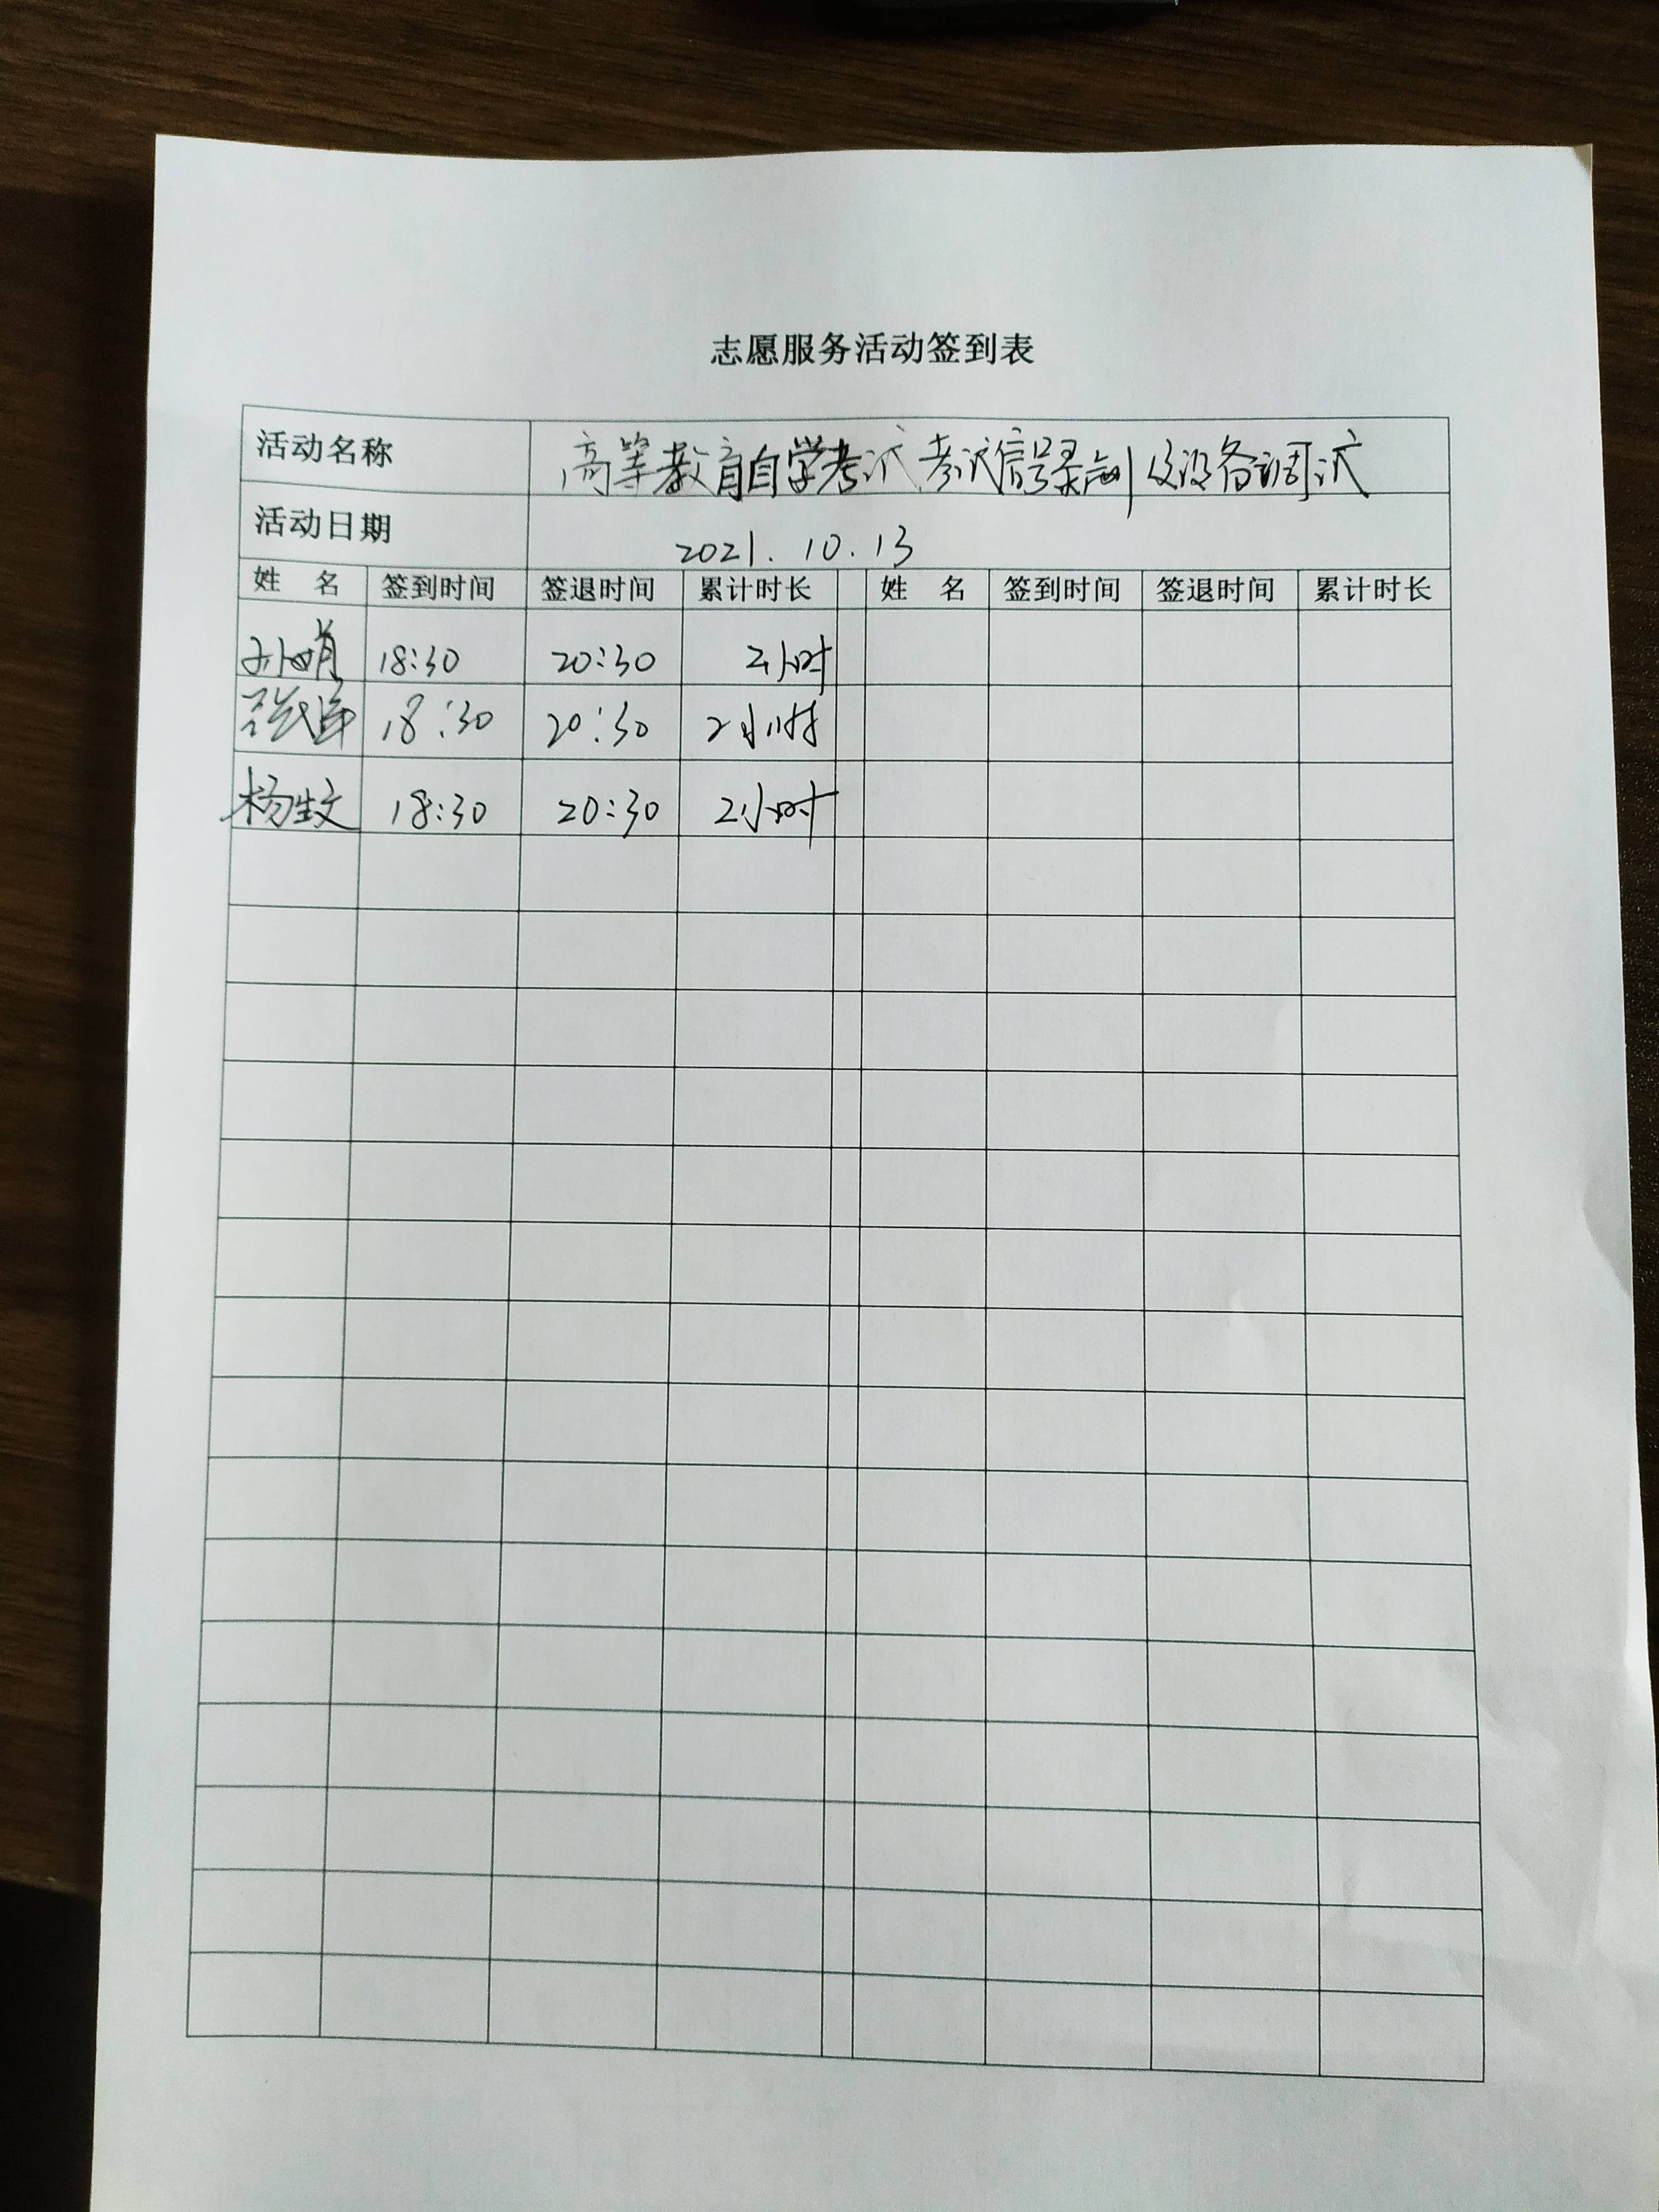 志愿服务活动签到表
活动名称 高等教育自学考试考试信号录制及设备调试
活动日期 2021.10.13
姓 名 签到时间 签退时间 累计时长 姓 名 签到时间 签退时间 累计时长
18:30 20:30 2小时
18:30 20:30 2小时
杨生文 18:30 20:30 2小时